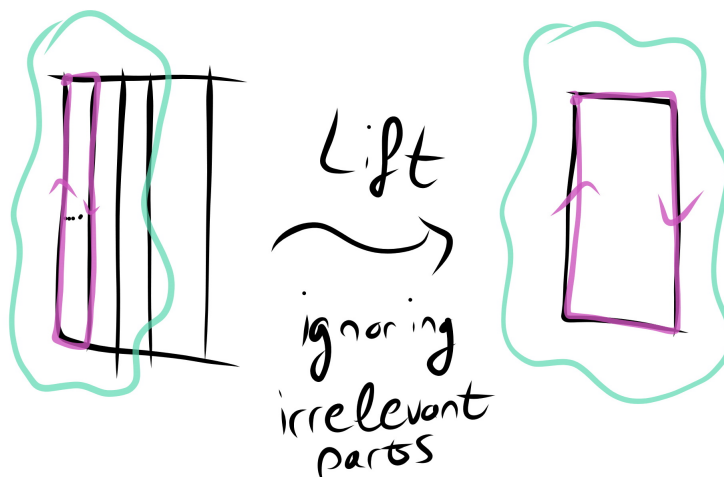 Lift
ignoring
irrelevant
parts